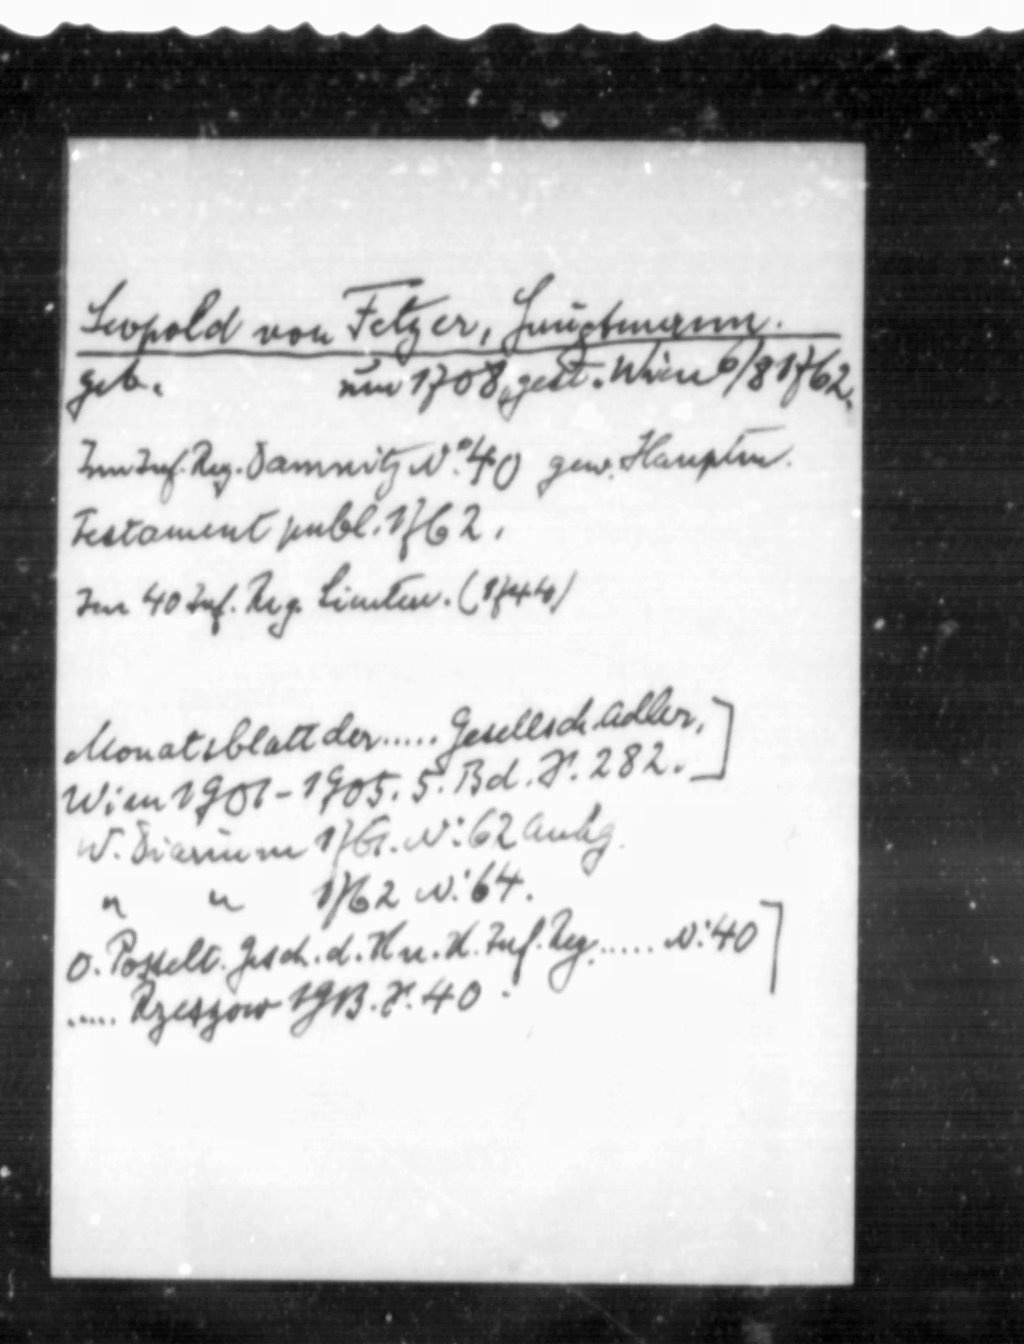 Leopold von Fetzer, Hauptmann.
geb. um 1708, gest. Wien 6/8 1762.
Im Inf. Reg. Damnitz No. 40 gew. Hauptm.
Testament publ. 1762.
Im 40 Inf. Reg. Lieuten. (1744)
Monatsblatt der..... Gesellsch. Adler,
Wien 1901-1905. 5. Bd. S. 282.
W. Diarium 1761. N: 62 Anhg.
" " 1762 N: 64.
O. Posselt. Gesch. d. K u. K. Inf. Reg...... N: 40
..... Rzeszow 1913. S. 40.